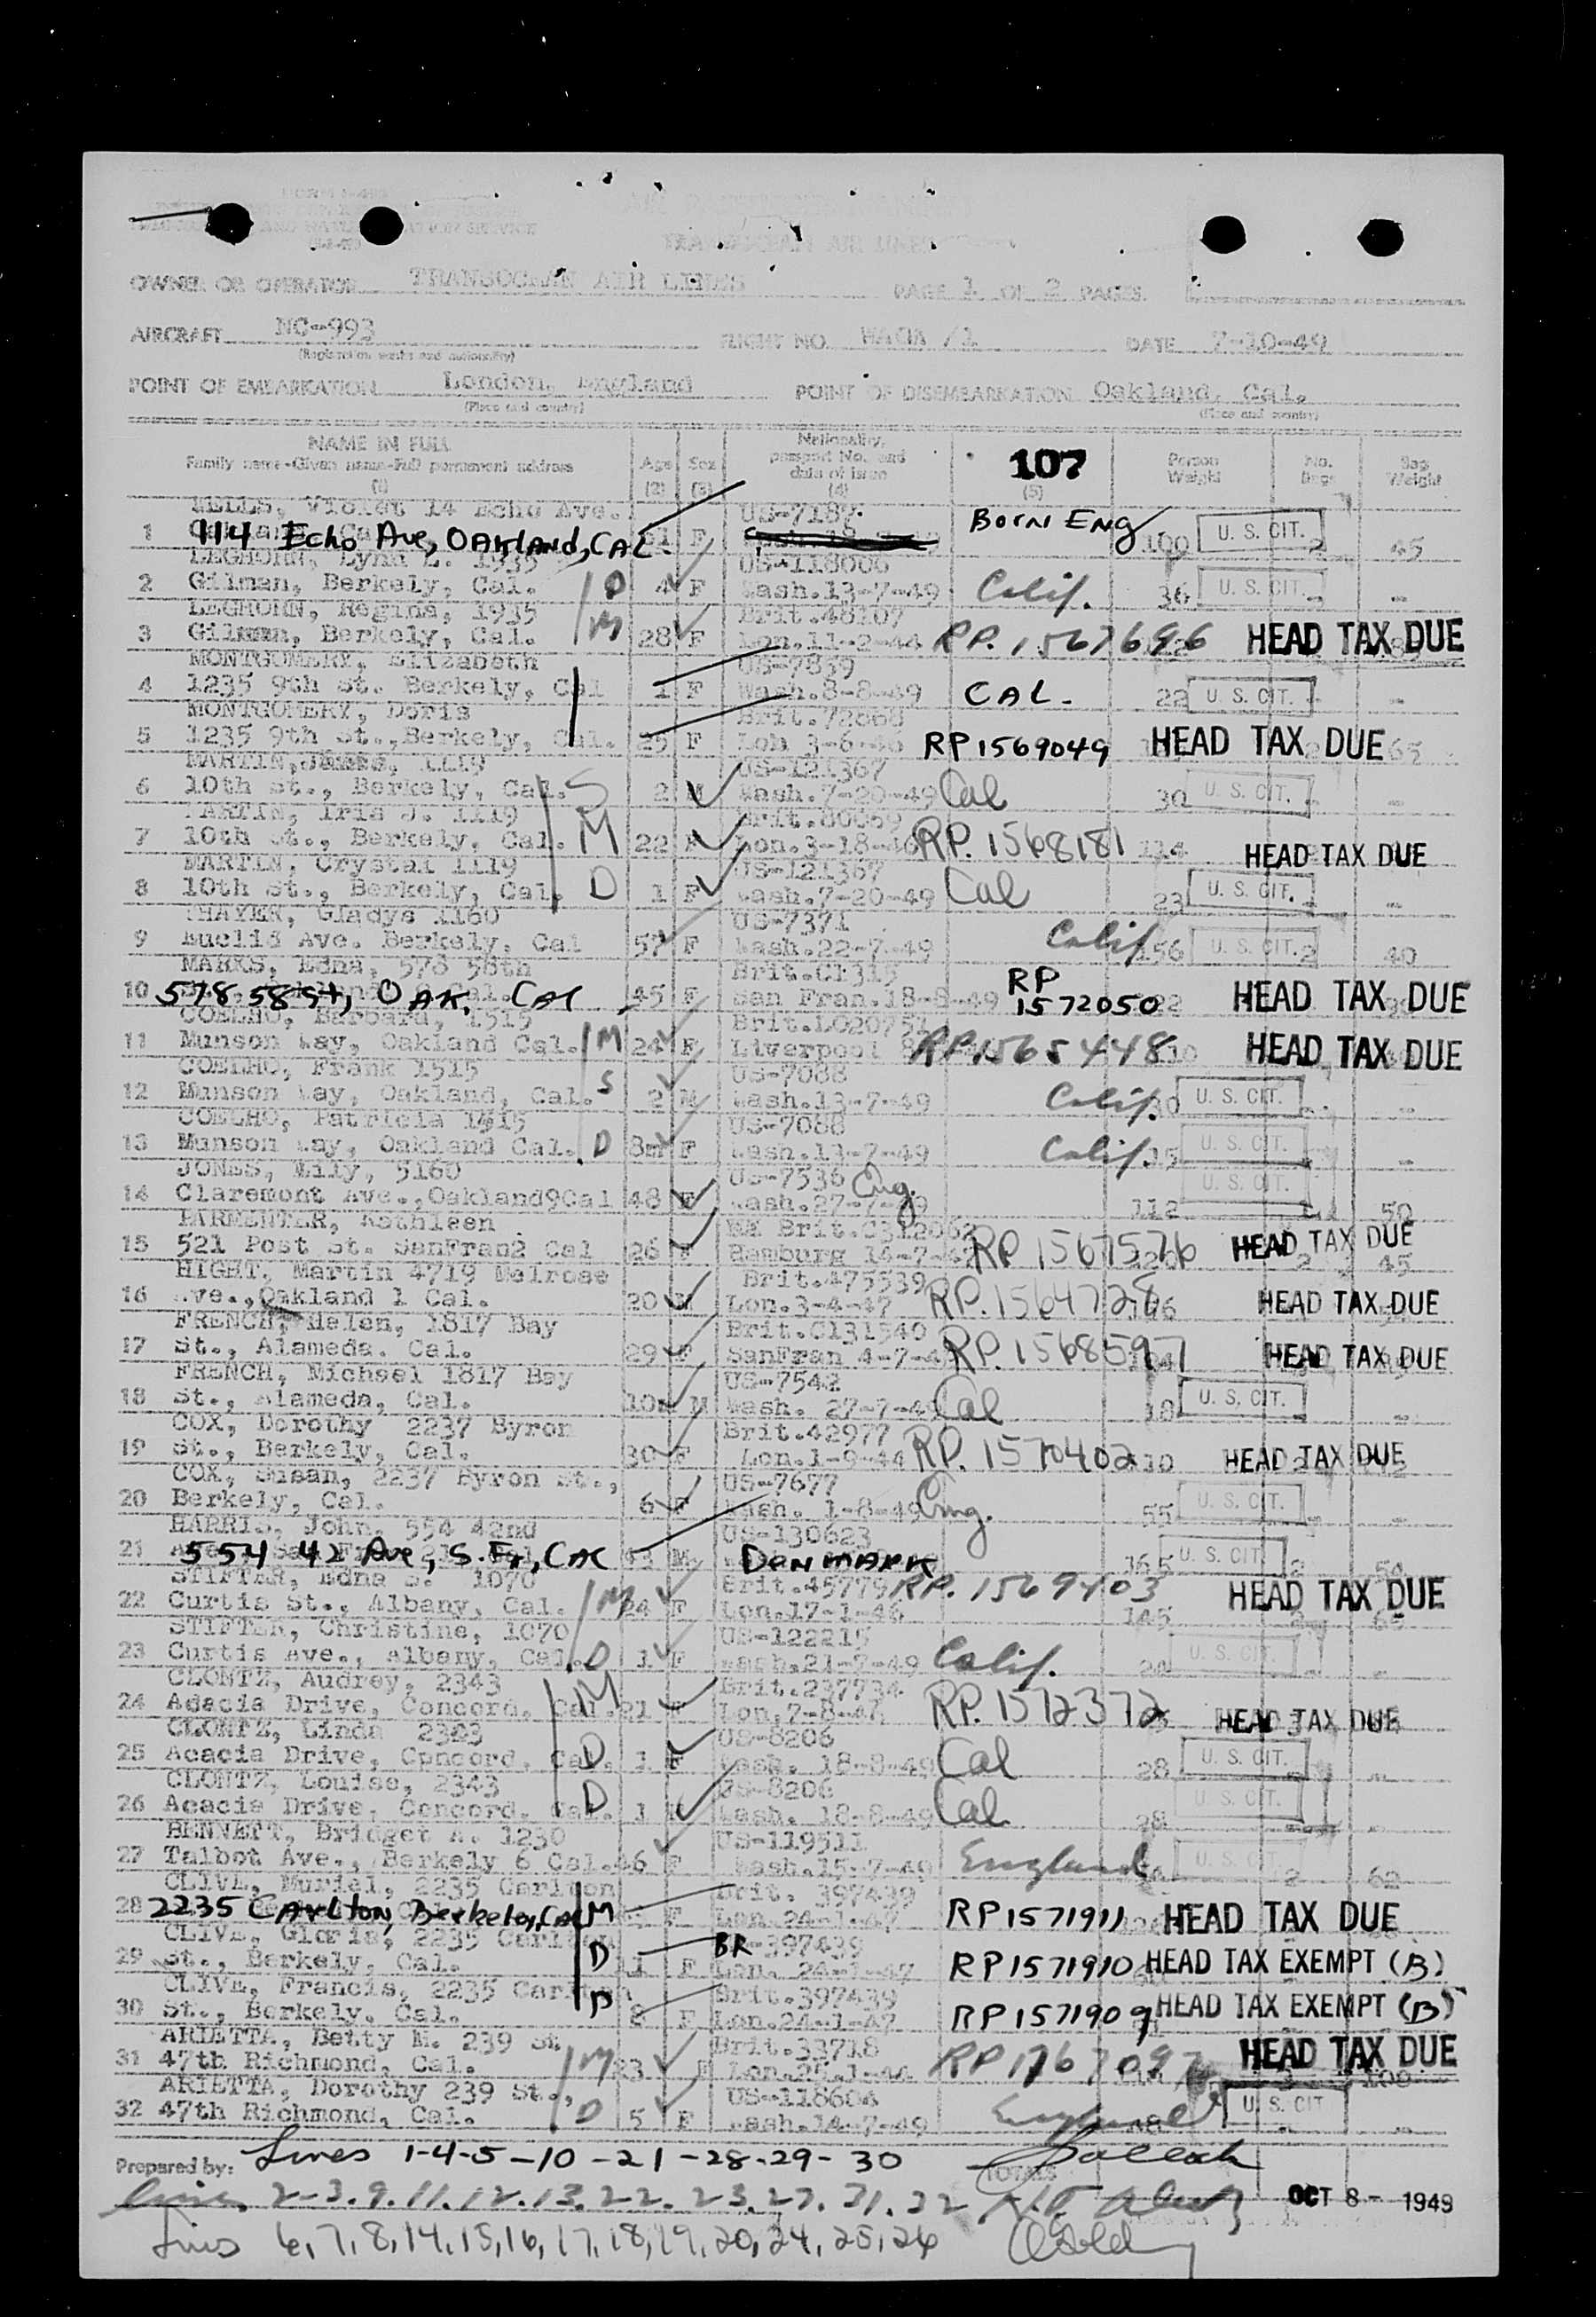 FORM I-466
OWNER OR OPERATOR TRANSOCEAN AIR LINES PAGE 1 OF 2 PAGES
AIRCRAFT NC-993 FLIGHT NO. DATE 7-10-49
(Registration marks and nationality)
POINT OF EMBARKATION London, England POINT OF DISEMBARKATION Oakland, Cal.
(Place and country) (Place and country)
NAME IN FULL
Family name-Given name-Full permanent address
(1) Age (2) Sex (3) Nationality, passport No. and date of issue (4) 107 (5) Person Weight No. Bags Bag Weight
Violet 14 Echo Ave. US-718
1 114 Echo Ave, Oakland, CAL. F Born Eng 100 U. S. CIT. 2 45
LEGHORN, Lynn L. 1935 US-118006
2 Gilman, Berkely, Cal. D 4 F Wash.13-7-49 Calif. 36 U. S. CIT.
LEGHORN, Regina, 1935 Brit.48107
3 Gilman, Berkely, Cal. M 28 F Lon.11-2-44 RP. 1567696 HEAD TAX DUE
MONTGOMERY, Elizabeth US-7839
4 1235 9th St. Berkely, Cal 1 F Wash.8-8-49 CAL. 22 U. S. CIT.
MONTGOMERY, Doris Brit.72868
5 1235 9th St., Berkely, Cal. 25 F Lon 3-6-46 RP1569049 HEAD TAX DUE 65
MARTIN, James, 1119 US-121367
6 10th St., Berkely, Cal. S 2 M Wash.7-20-49 Cal 30 U. S. CIT.
MARTIN, Iris J. 1119 Brit.80069
7 10th St., Berkely, Cal. M 22 F Lon.3-18-46 RP. 1568181 114 HEAD TAX DUE
MARTIN, Crystal 1119 US-121367
8 10th St., Berkely, Cal. D 1 F Wash.7-20-49 Cal 23 U. S. CIT.
THAYER, Gladys 1160 US-7371
9 Euclid Ave. Berkely, Cal 57 F Wash.22-7-49 Calif 156 U. S. CIT. 2 40
MARKS, Edna, 578 58th Brit.C1315 RP
10 578 58 St, OAK, CAL 45 F San Fran.18-8-49 1572050 HEAD TAX DUE
COELHO, Barbara, 1515 Brit.LO20754
11 Munson Way, Oakland Cal. M 24 F Liverpool RP1565448 HEAD TAX DUE
COELHO, Frank 1515 US-7088
12 Munson Way, Oakland, Cal. S 2 M Wash.13-7-49 Calif. 30 U. S. CIT.
COELHO, Patricia 1515 US-7088
13 Munson Way, Oakland Cal. D 8m F Wash.13-7-49 Calif. 15 U. S. CIT.
JONES, Lily, 5160 US-7536 Eng.
14 Claremont Ave.,Oakland9Cal 48 F Wash.27-7-49 112 U. S. CIT. 1 50
PARMENTER, Kathleen Brit.C312062
15 521 Post St. SanFran2 Cal 26 F Hamburg 14-7-4 RP 1567576 HEAD TAX DUE 2 45
HIGHT, Martin 4719 Melrose Brit.475539
16 Ave.,Oakland 1 Cal. 20 M Lon.3-4-47 RP. 1564728 HEAD TAX DUE
FRENCH, Helen, 1817 Bay Brit.C131540
17 St., Alameda. Cal. 29 F SanFran 4-7-4 RP. 1568597 HEAD TAX DUE
FRENCH, Michael 1817 Bay US-7542
18 St., Alameda, Cal. 10m M Wash. 27-7-49 Cal 18 U. S. CIT.
COX, Dorothy 2237 Byron Brit.42977
19 St., Berkely, Cal. 30 F Lon.1-9-44 RP. 1570402 HEAD TAX DUE
COX, Susan, 2237 Byron St., US-7677
20 Berkely, Cal. 6 F Wash. 1-8-49 Eng. 55 U. S. CIT.
HARRIS, John, 554 42nd US-130623
21 554 42 Ave, S. Fr, CAL M Denmark 165 U. S. CIT. 2
STIFTER, Edna S. 1070 Brit.45779 RP. 1569403
22 Curtis St., Albany, Cal. M 24 F Lon.17-1-46 145 HEAD TAX DUE
STIFTER, Christine, 1070 US-122215
23 Curtis Ave., Albany, Cal. D 1 F Wash.21-7-49 Calif. U. S. CIT.
CLONTZ, Audrey, 2343 Brit.237734
24 Acacia Drive, Concord, Cal. M 21 F Lon.7-8-46 RP. 1572372 HEAD TAX DUE
CLONTZ, Linda 2343 US-8206
25 Acacia Drive, Concord, Cal. D 1 F Wash. 18-8-49 Cal 28 U. S. CIT.
CLONTZ, Louise, 2343 US-8206
26 Acacia Drive, Concord, Cal. D 1 F Wash. 18-8-49 Cal 28 U. S. CIT.
BENNETT, Bridget A. 1230 US-119511
27 Talbot Ave., Berkely 6 Cal. 46 F Wash.15-7-49 England U. S. CIT. 2 62
CLIVE, Muriel, 2235 Carlton Brit. 397439
28 2235 Carlton, Berkeley, Cal M F Lon.24-1-47 RP1571911 HEAD TAX DUE
CLIVE, Gloria, 2235 Carlton BR -397439
29 St., Berkely, Cal. D 11 F Lon. 24-1-47 RP1571910 HEAD TAX EXEMPT (B)
CLIVE, Francis, 2235 Carlton Brit.397439
30 St., Berkely. Cal. D 8 F Lon.24-1-47 RP1571909 HEAD TAX EXEMPT (B)
ARIETTA, Betty M. 239 St. Brit.33718
31 47th Richmond, Cal. M 23 F Lon.25.1-44 HEAD TAX DUE
ARIETTA, Dorothy 239 St., US-118604
32 47th Richmond, Cal. D 5 F Wash.14-7-49 England U. S. CIT
Prepared by: Lines 1-4-5-10-21-28-29-30 TOTALS
Lines 2-3.9.11.12.13.22.23.27.31.32 OCT 8- 1949
Lines 6,7,8,14,15,16,17,18,19,20,24,25,26